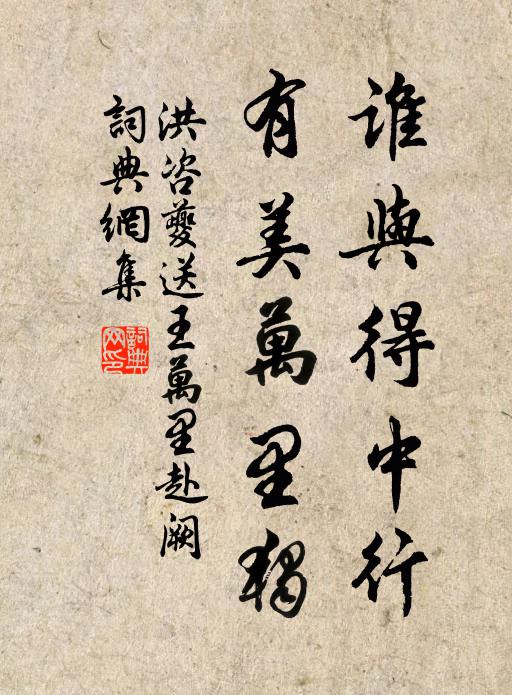 誰與得中行
有美萬里獨
洪咨夔送王萬里赴阙
詞典網集
詞典网印